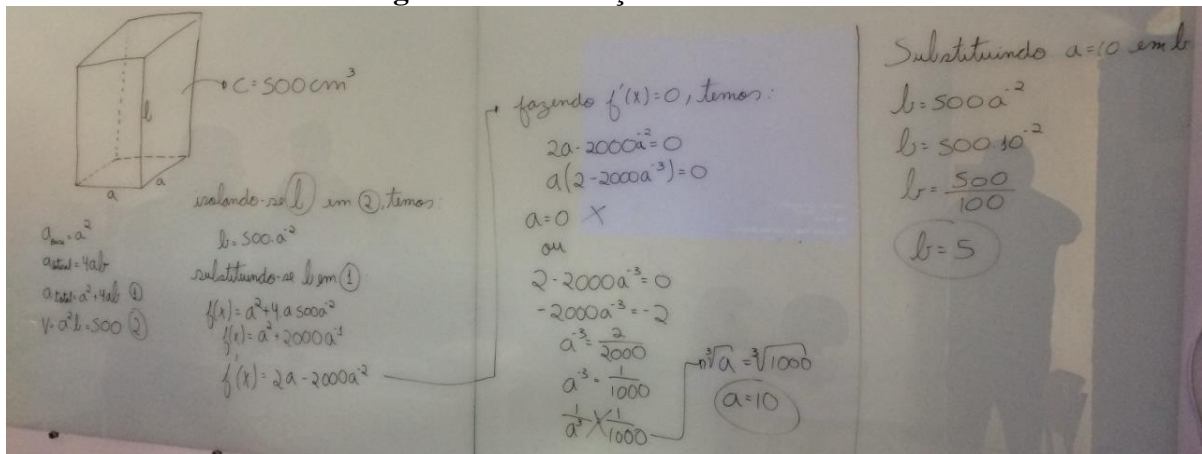 C=500cm³
b
a
a
a_base = a²
a_lateral = 4ab
a_total = a²+4ab ①
V=a²b=500 ②
isolando-se b em ②, temos:
b=500.a⁻²
substituindo-se b em ①
f(x)=a²+4.a500a⁻²
f(x)=a²+2000a⁻¹
f'(x)=2a-2000a⁻²
fazendo f'(x)=0, temos:
2a-2000a⁻²=0
a(2-2000a⁻³)=0
a=0 X
ou
2-2000a⁻³=0
-2000a⁻³=-2
a⁻³=2/2000
a⁻³=1/1000
1/a³ 1/1000
³√a=³√1000
a=10
Substituindo a=10 em b
b=500a⁻²
b=500.10⁻²
b=500/100
b=5